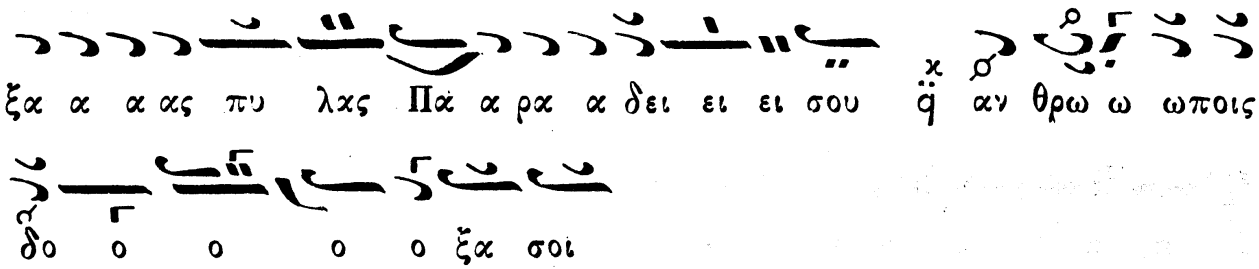 ξα α α ας πυ λας Πα α ρα α δει ει ει σου q̈ αν θρω ω ωποις
δο ο ο ο ο ξα σοι